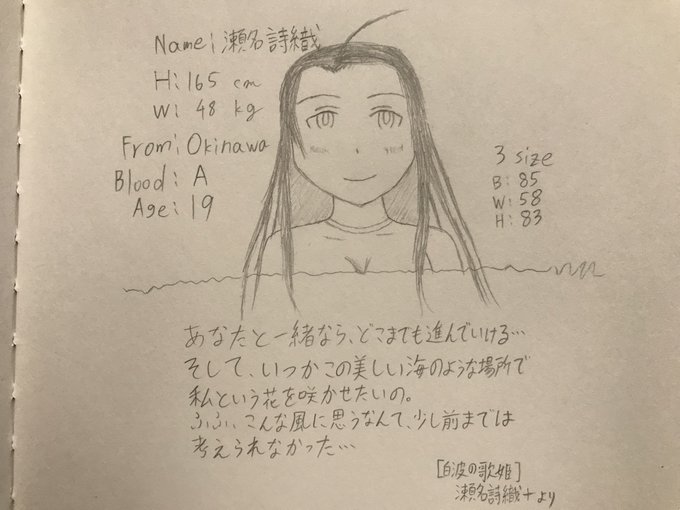 Name: 瀬名詩織
H: 165 cm
W: 48 kg
From: Okinawa
Blood: A
Age: 19
3 size
B: 85
W: 58
H: 83
あなたと一緒なら、どこまでも進んでいける…
そして、いつかこの美しい海のような場所で
私という花を咲かせたいの。
ふふ、こんな風に思うなんて、少し前までは
考えられなかった…
[白波の歌姫]
瀬名詩織+より